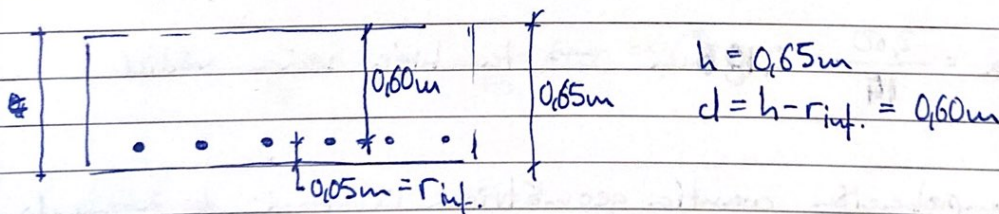 0,60m
0,65m
h = 0,65m
d = h - r inf. = 0,60m
0,05m = r inf.